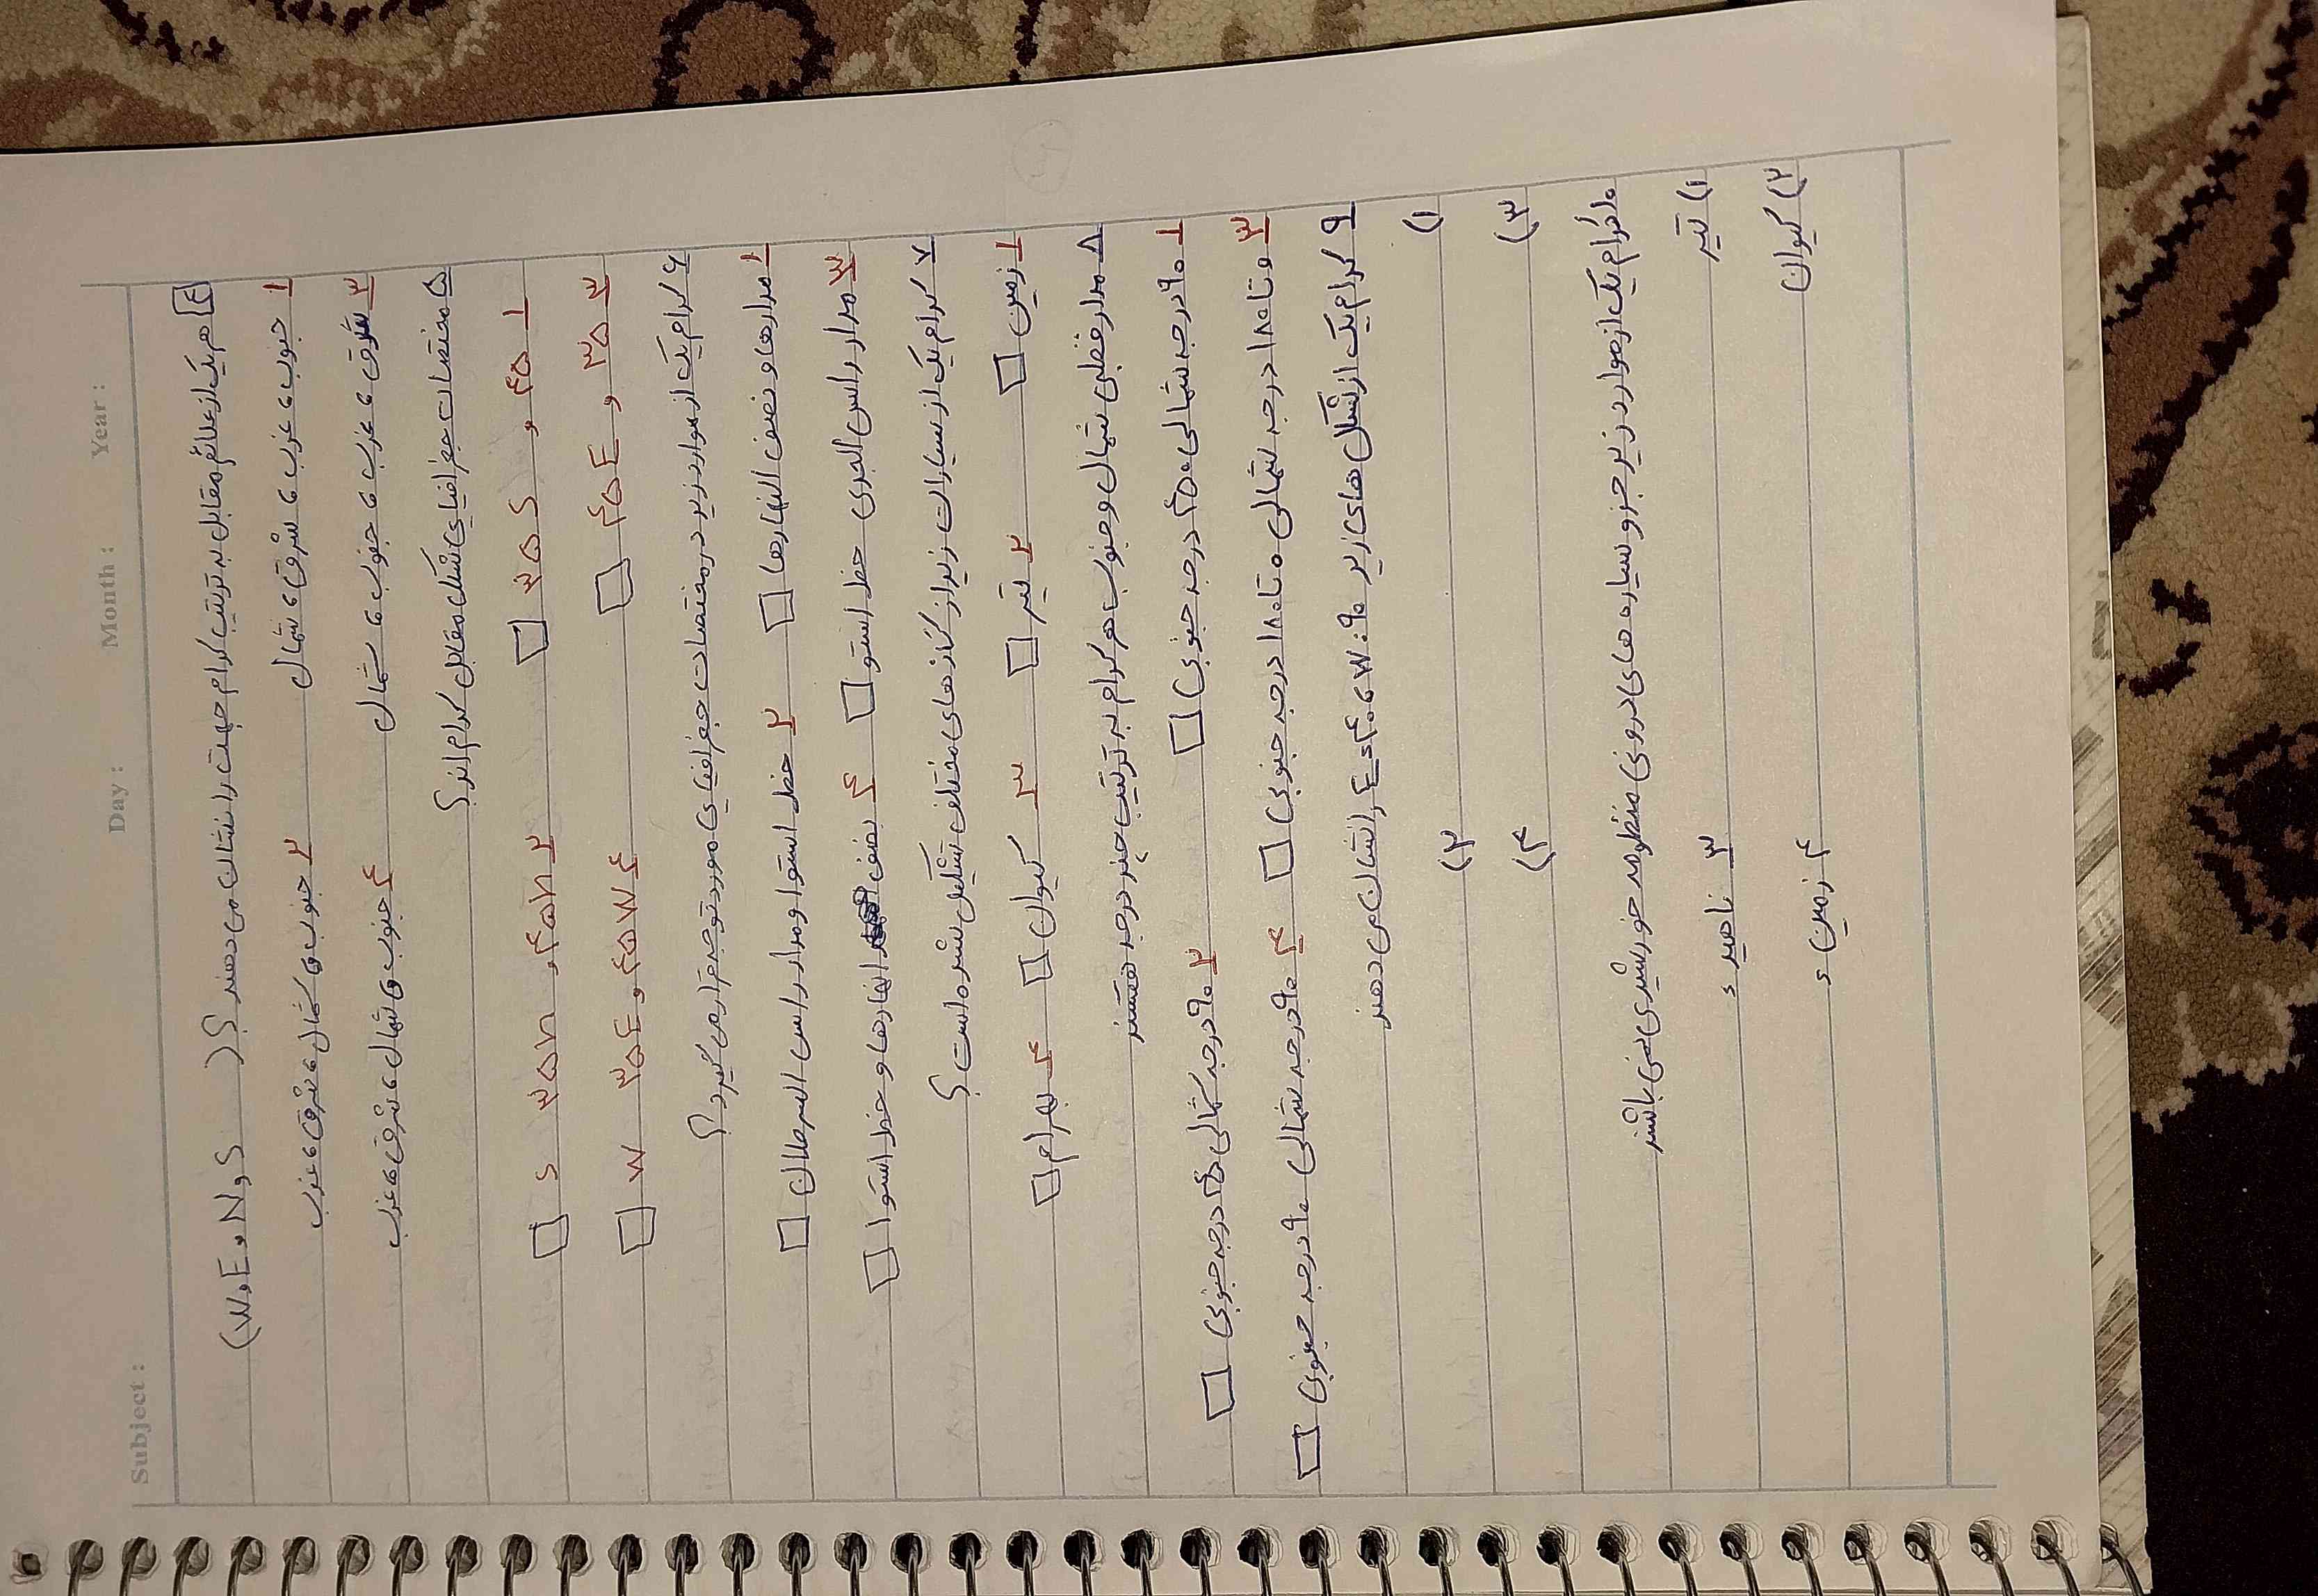 Subject : Day : Month : Year :
٤ هم یک از علائم مقابل به ترتیب کدام جهت را نشان می دهند ؟ ( W و E و N و S )
۱ جنوب ، غرب ، شرق ، شمال ۲ جنوب و شمال ، شرق ، غرب
۳ شرق ، غرب ، جنوب ، شمال ٤ جنوب و شمال ، شرق ، غرب
۵ مختصات جغرافیایی شکل مقابل کدام اند ؟
۱ ۴۵ و ۳۵ S □ ۲ ۴۵ n و ۳۵ n S □
۳ ۳۵ و ۴۵ E □ ٤ ۴۵ W و ۳۵ E W □
۶ کدام یک از موارد زیر در مختصات جغرافیایی مورد توجه قرار می گیرد ؟
۱ مدارها و نصف النهارها □ ۲ خط استوا و مدار راس السرطان □
۳ مدار راس الجدی خط استوا □ ٤ نصف النهارها و خط استوا □
۷ کدام یک از سیارات زیر از گازهای مختلف تشکیل شده است ؟
۱ زمین □ ۲ تیر □ ۳ کیوان □ ۴ بهرام □
۸ مدار قطبی شمال و جنوب هر کدام به ترتیب چند درجه هستند
۱ ۹۰ درجه شمالی ۴۵۰ درجه جنوبی □ ۲ ۹۰ درجه شمالی ۴۵ درجه جنوبی □
۳ و تا ۱۸۰ درجه شمالی ۰ تا ۱۸۰ درجه جنوبی □ ۴ ۹۰ درجه شمالی ۹۰ درجه جنوبی □
۹ کدام یک از شکل های زیر ۹۰ : W ، ۴۰ E را نشان می دهند
۱) ۲)
۳) ۴)
۱۰ کدام یک از موارد زیر جزو سیاره های درونی منظومه خورشیدی نمی باشند
۱) تیر ۳ ناهید
۲) کیوان ۴ زمین